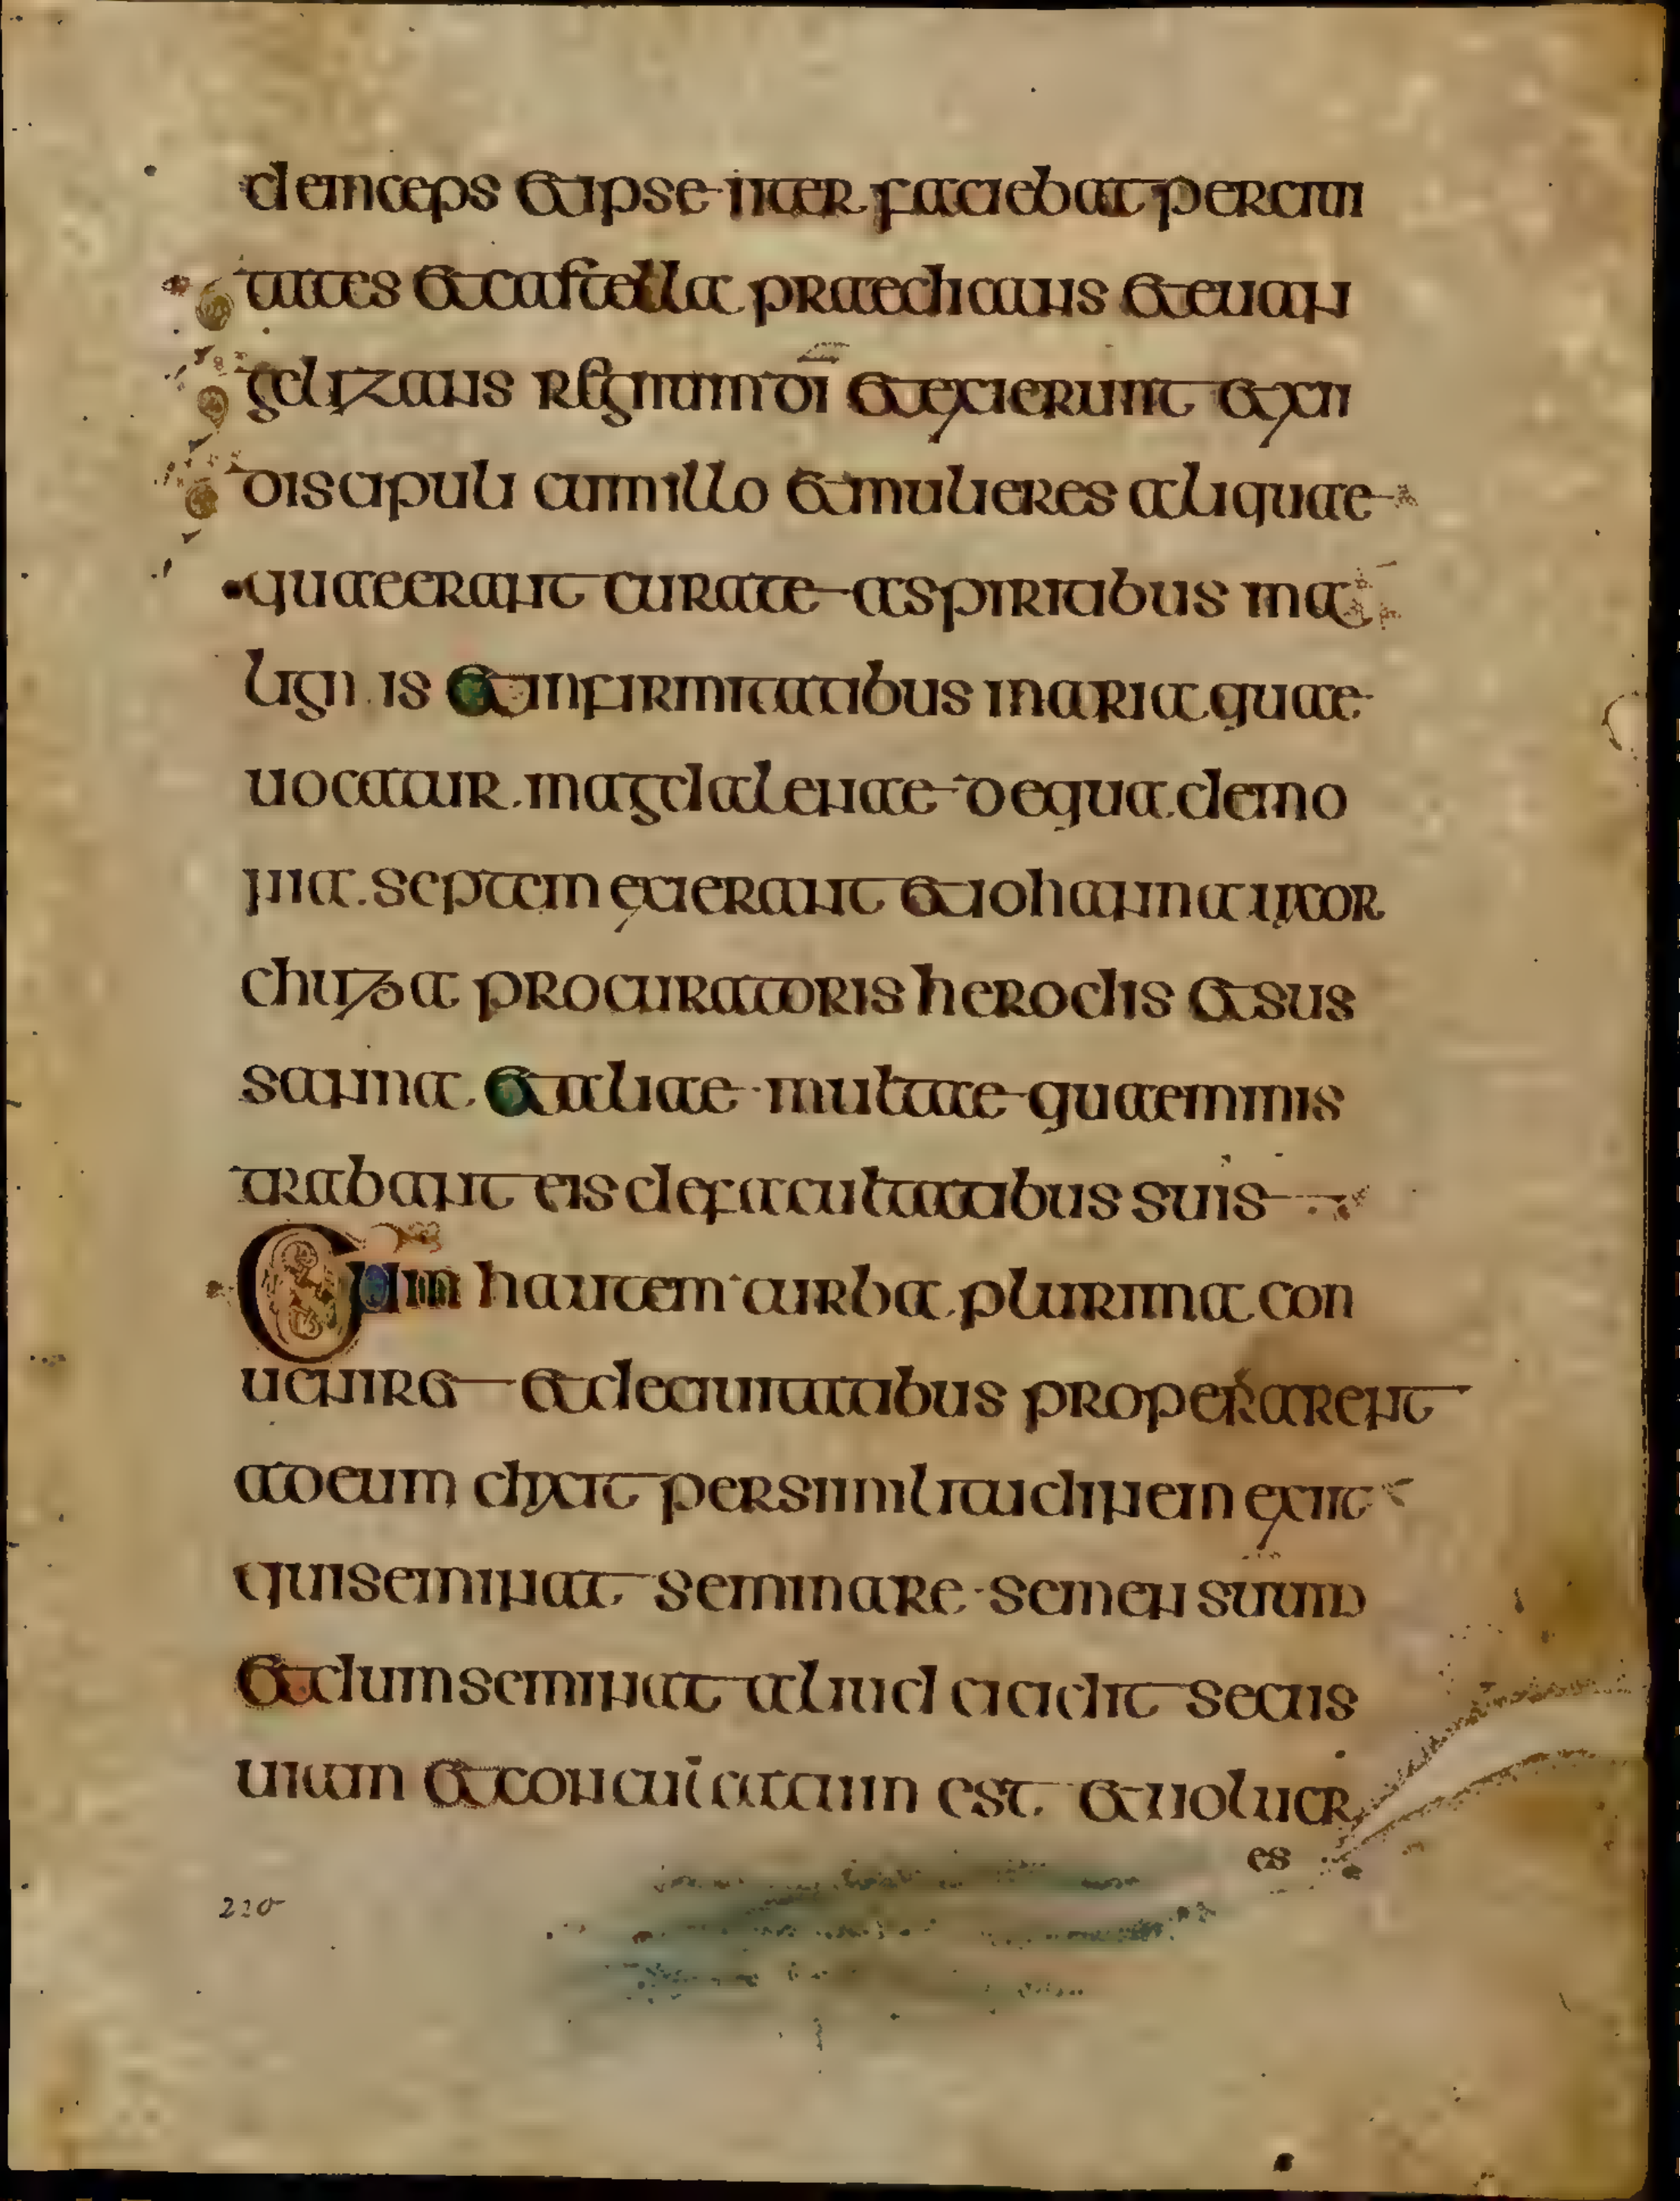 deinceps et ipse iter faciebat per ciui
tates et castella praedicans et euan
gelizans regnum dī et exierunt et xii
discipuli cum illo et mulieres aliquae
quae erant curate a spiritibus ma
lignis et infirmitatibus maria quae
uocatur magdalenae de qua demo
nia septem exierant et iohanna uxor
chuza procuratoris herodis et sus
sanna et aliae multae quae minis
trabant eis de facultatibus suis
Cum hautem turba plurima con
ueniret et de ciuitatibus properarent
ad eum dixit per similitudinem exiit
qui seminat seminare semen suum
et dum seminat aliud cicidit secus
uiam et conculcatum est et uolucr
es
220